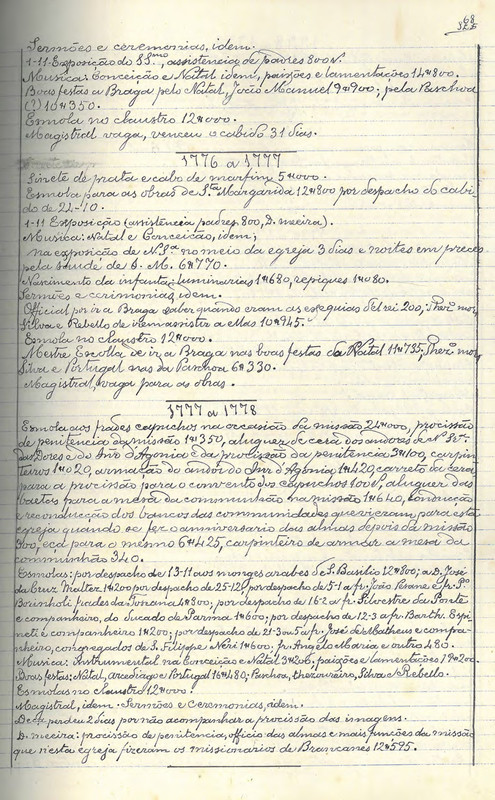 68
Sermões e ceremonias, idem.
1-11 Exposição do SS.mo, assistencia de padres 800 r.
Musica: Conceição e Natal idem, paixões e lamentações 14#800.
Boas festas a Braga pelo Natal, João Manuel 9#900; pela Paschoa
(?) 10#350.
Esmola no claustro 12#000.
Magistral vaga, venceu o cabido 31 dias.
1776 a 1777
Sinete de prata e cabo de marfim 5#000.
Esmola para as obras de S.ta Margarida 12#800 por despacho do cabi-
do de 22-10.
1-11 Exposição (assistencia padres 800, D. meira).
Musica: Natal e Conceição, idem;
na exposição de N. S.ra no meio da egreja 3 dias e noites em preces
pela saude de S. M. 6#770.
Nascimento da infanta: luminarias 1#680, repiques 1#080.
Sermões e cerimonias, idem.
Official por ir a Braga saber quando eram as exequias del rei 200; Thez.ro mor
Silva e Rebello de irem assistir a ellas 10#945.
Esmola no claustro 12#000.
Mestre Escolla de ir a Braga nas boas festas da Natal 11#735; Thez.ro mor
Silva e Portugal nas da Paschoa 6#330.
Magistral, vaga para as obras.
1777 a 1778
Esmola aos frades capuchos na occasião da missão 24#000, procissão
de penitencia da missão 1#350, aluguer de cera dos andores de N. Sr.a
das Dores e do Snr. d'Agonia e da procissão da penitencia 3#100, carpin-
teiros 1#020, armação do andor do Snr. d'Agonia 1#420, carreto da cera
para a procissão para o convento dos Capuchos 100 r., aluguer das
baetas para a mesa da communhão na missão 1#640, conducção
e reconducção dos bancos das communidades que vieram para esta
egreja quando se fez o anniversario das almas depois da missão
300, eça para o mesmo 6#425, carpinteiro de armar a mesa da
communhão 340.
Esmolas: por despacho de 13-11 aos monges arabes de S. Basilio 12#800; a D. José
da Cruz Walter 1#200 por despacho de 25-12; por despacho de 5-1 a fr. João
frades da 4#800; por despacho de 16-2 a fr. Silvestre da Ponte
e companheiro, do Ducado de Parma 1#600; por despacho de 12-3 a fr. Barth. Espi-
neti e companheiro 1#200; por despacho de 21-3 ou 5 a fr. José de Matheus e compa-
nheiro, congregados de S. Filippe Néri 1#600; fr. Angelo Maria e outro 485.
Musica: Instrumental na Conceição e Natal 3#206; paixões e lamentações 19#200.
Boas festas: Natal, arcediago e Portugal 16#480; Paschoa, thezoureiro, Silva e Rebello.
Esmolas no claustro 12#000.
Magistral, idem. Sermões e Ceremonias, idem.
perdeu 2 dias por não acompanhar a procissão das imagens.
D. meira: procissão de penitencia, officio das almas e mais funcções da missão
que n'esta egreja fizeram os missionarios de Brancanes 12#595.